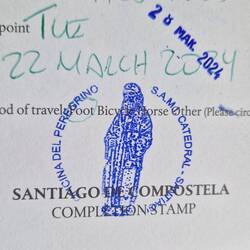 point TUE
28 MAR. 2024
22 MARCH 2024
od of travel: Foot Bicycle Horse Other (Please circ
OFICINA DEL PEREGRINO
S.A.M.I. CATEDRAL - SANTIAGO
SANTIAGO DE COMPOSTELA
COMPLETION STAMP